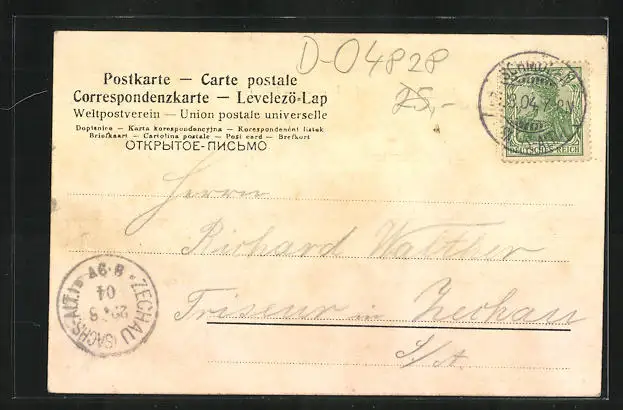 D-04828
25,-
Postkarte — Carte postale
Correspondenzkarte — Levelező-Lap
Weltpostverein — Union postale universelle
Dopisnice — Karta korespondencyjna — Korespondenční listek
Briefkaart — Cartolina postale — Post card — Brefkort
ОТКРЫТОЕ-ПИСЬМО
SCHMÖLLN
8.04.7-8V
DEUTSCHES REICH
Herrn
Richard Walther
Friseur in Zechau
S/A.
ZECHAU (SACHS-ALT.)
04
8-9V